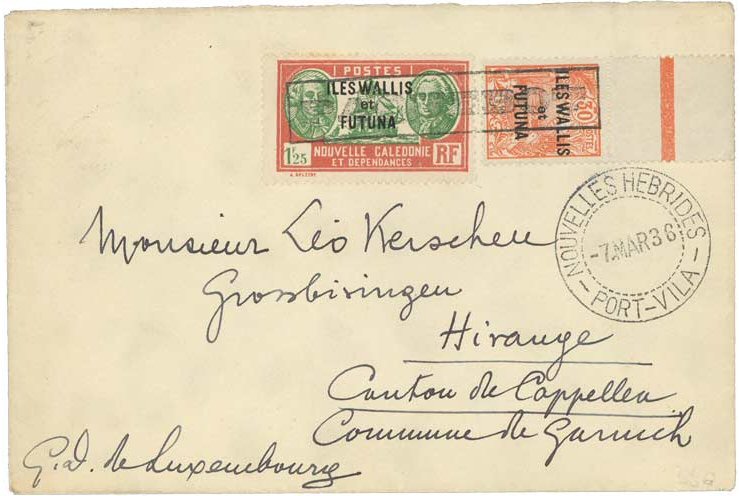 POSTES
ILES WALLIS
et
FUTUNA
1F25
NOUVELLE CALEDONIE
ET DEPENDANCES
RF
ILES WALLIS
et
FUTUNA
30
NOUVELLES HEBRIDES
-7.MAR36
- PORT-VILA -
Monsieur Léo Kerschen
Grossbisingen
Hivange
Canton de Cappellen
Commune de Garnich
G.d. de Luxembourg